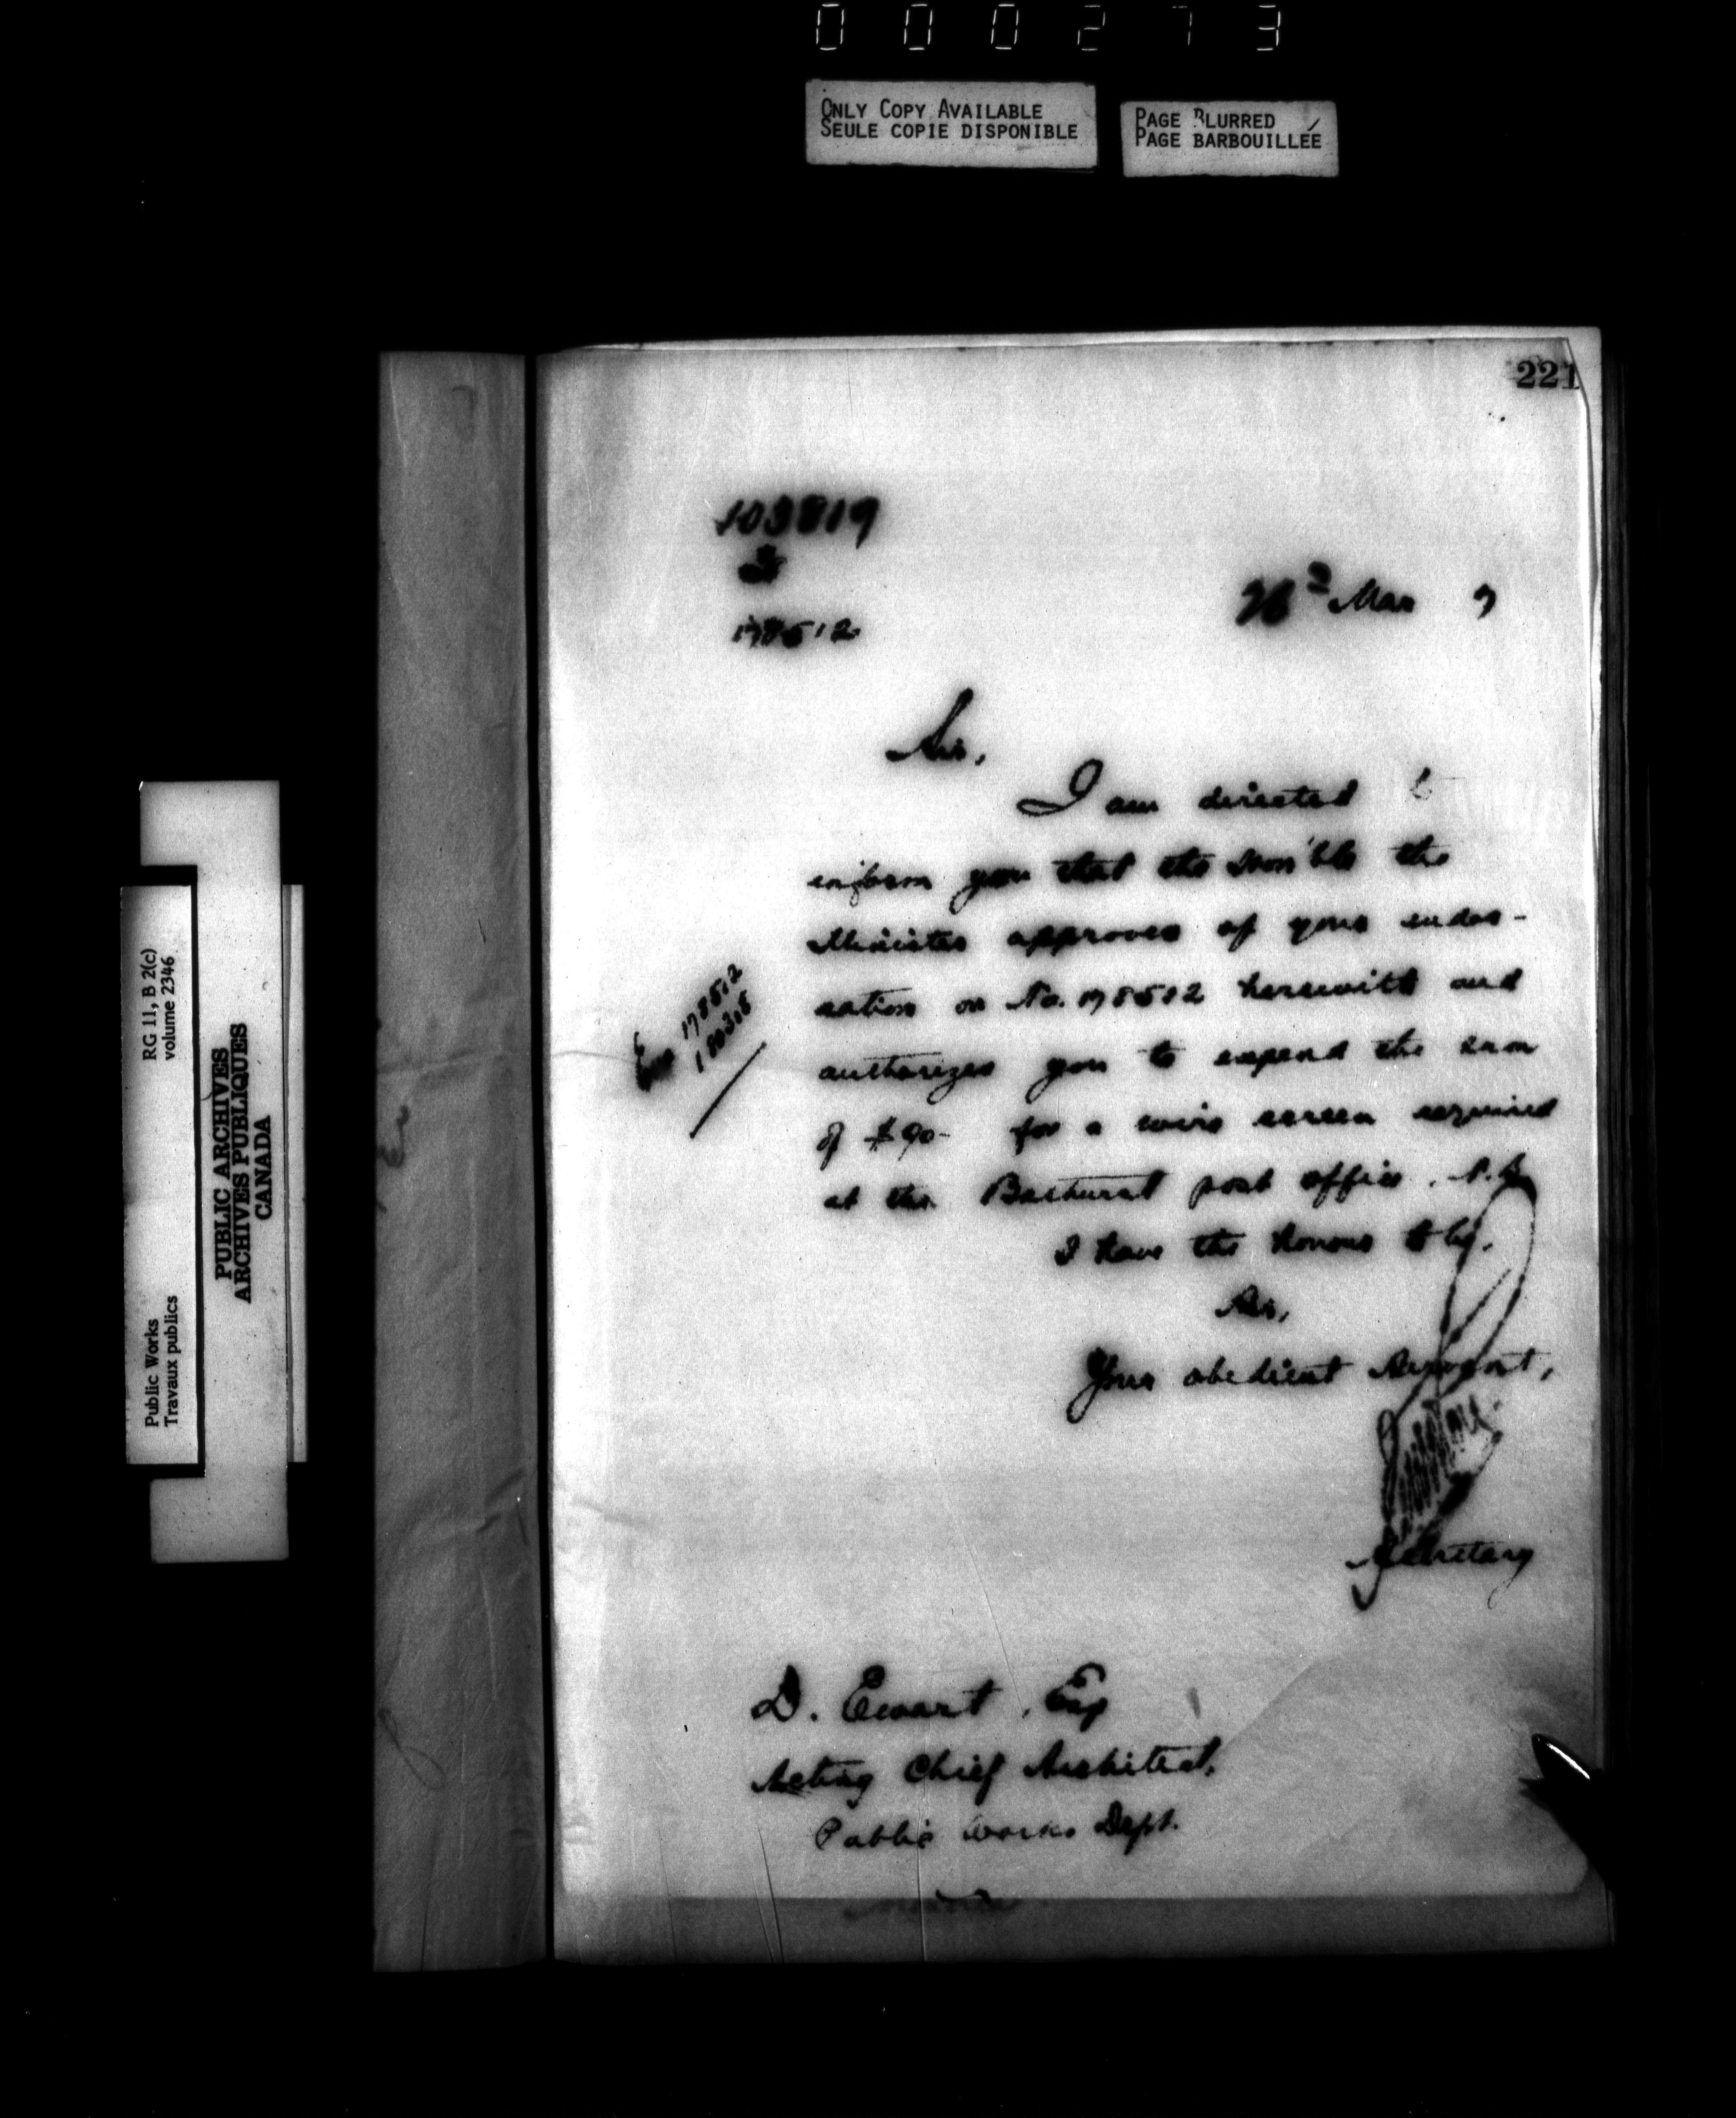 000273
ONLY COPY AVAILABLE
SEULE COPIE DISPONIBLE
PAGE BLURRED
PAGE BARBOUILLÉE
221
103819
178512
Mar 7
Sir,
I am directed to
inform you that the Hon'ble the
Minister approves of your endor-
sation on No. 178512 herewith and
authorizes you to expend the sum
of $90- for a wire screen required
at the Bathurst post office, N.B.
I have the honour to be,
Sir,
Your obedient Servant,
Secretary
Enc 178512
D. Ewart, Esq
Acting Chief Architect,
Public Works Dept.
RG 11, B 2(c)
volume 2346
Public Works
Travaux publics
PUBLIC ARCHIVES
ARCHIVES PUBLIQUES
CANADA